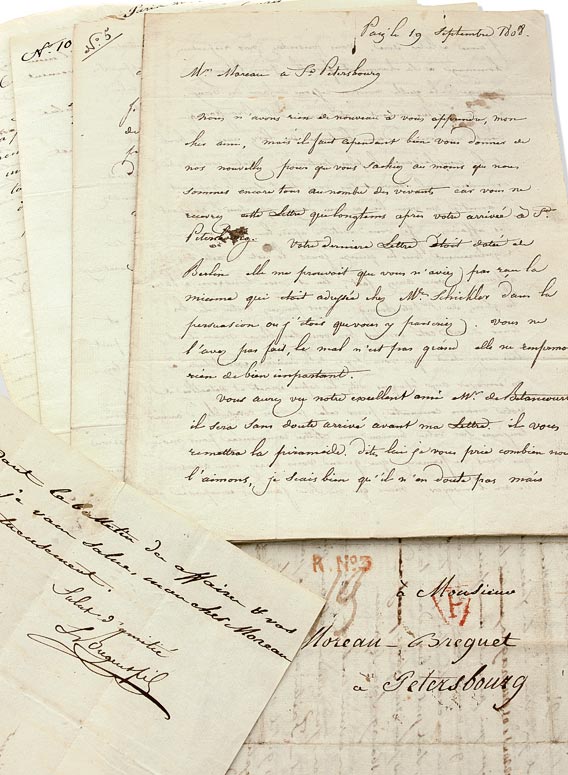 N.º 10
N.º 5
Paris le 19 Septembre 1808.
Mr. Moreau à St. Petersbourg
Nous n'avons rien de nouveau à vous apprendre, mon
cher ami, mais il faut cependant bien vous donner de
nos nouvelles pour que vous sachiez au moins que nous
sommes encore tous au nombre des vivants car vous ne
recevrez cette Lettre que longtems après votre arrivée à St.
Petersbourg. Votre dernière Lettre étoit datée de
Berlin elle me prouvait que vous n'aviez pas reçu la
mienne qui étoit adressée chez Mr. Schickler dans la
persuasion où j'étois que vous y passeriez. Vous ne
l'avez pas fait, le mal n'est pas grand elle ne renfermoit
rien de bien important.
Vous aurez vu notre excellent ami Mr. de Betancourt
il sera sans doute arrivé avant ma Lettre. il vous
remettra la piramide. dites lui je vous prie combien nous
l'aimons, je sais bien qu'il n'en doute pas mais
la collection des affaires & vos
je vous salue, mon cher Moreau
Salut d'amitié
R. Nº. 3
13
P
à Monsieur
Moreau-Breguet
à Petersbourg